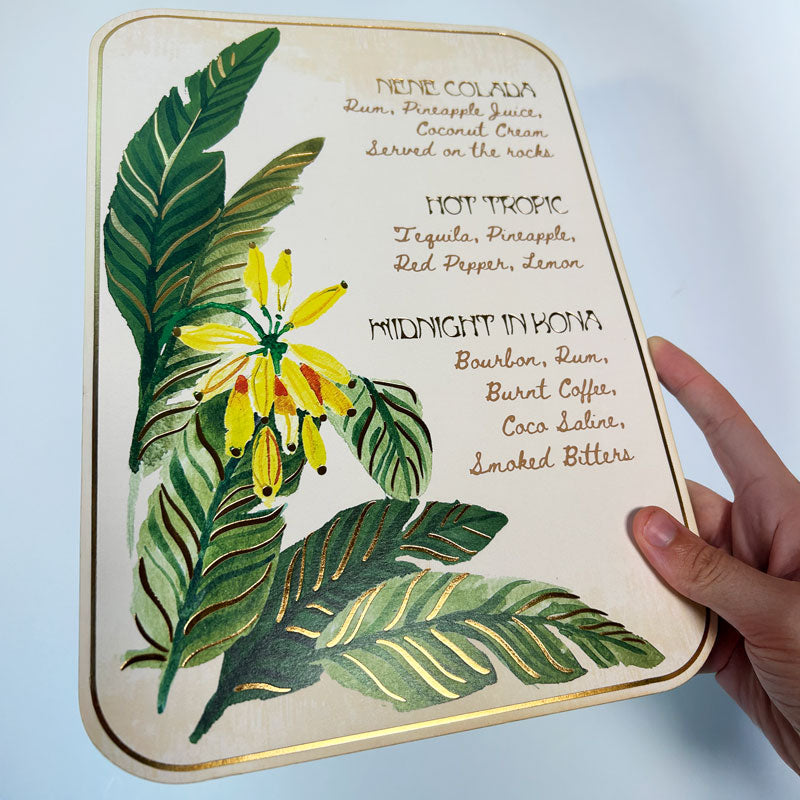 NENE COLADA
Rum, Pineapple Juice,
Coconut Cream
Served on the rocks
HOT TROPIC
Tequila, Pineapple,
Red Pepper, Lemon
MIDNIGHT IN KONA
Bourbon, Rum,
Burnt Coffee,
Coco Saline,
Smoked Bitters